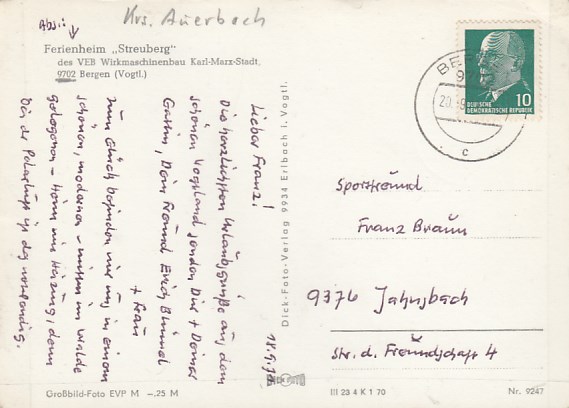 Krs. Auerbach
Abs.:
Ferienheim „Streuberg"
des VEB Wirkmaschinenbau Karl-Marx-Stadt,
9702 Bergen (Vogtl.)
BER
9
20.
c
10
DEUTSCHE
DEMOKRATISCHE REPUBLIK
18.9.70
Lieber Franz!
Die herzlichsten Urlaubsgrüße aus dem
schönen Vogtland senden Dir + Deiner
Gattin, Dein Freund Erich Blümel
+ Frau
Zum Glück befinden wir uns in einem
schönen, modernen - mitten im Walde
gelegenen - Heim mit Heizung, denn
bei der Polarluft ist das notwendig.
Dick-Foto-Verlag 9934 Erlbach i. Vogtl.
Sportfreund
Franz Braun
9376 Jahnsbach
Str. d. Freundschaft 4
Großbild-Foto EVP M –.25 M
III 23 4 K 1 70
Nr. 9247